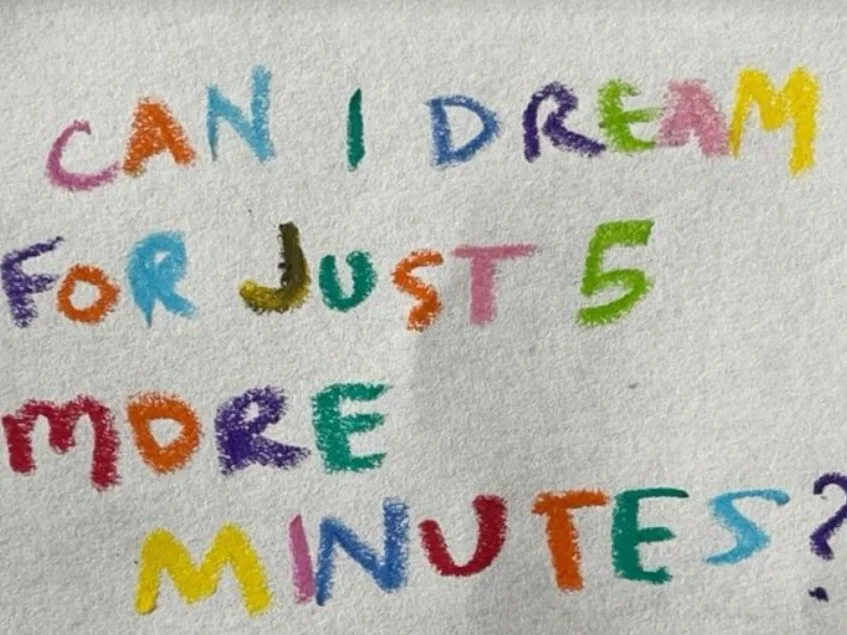 CAN I DREAM
FOR JUST 5
MORE
MINUTES?